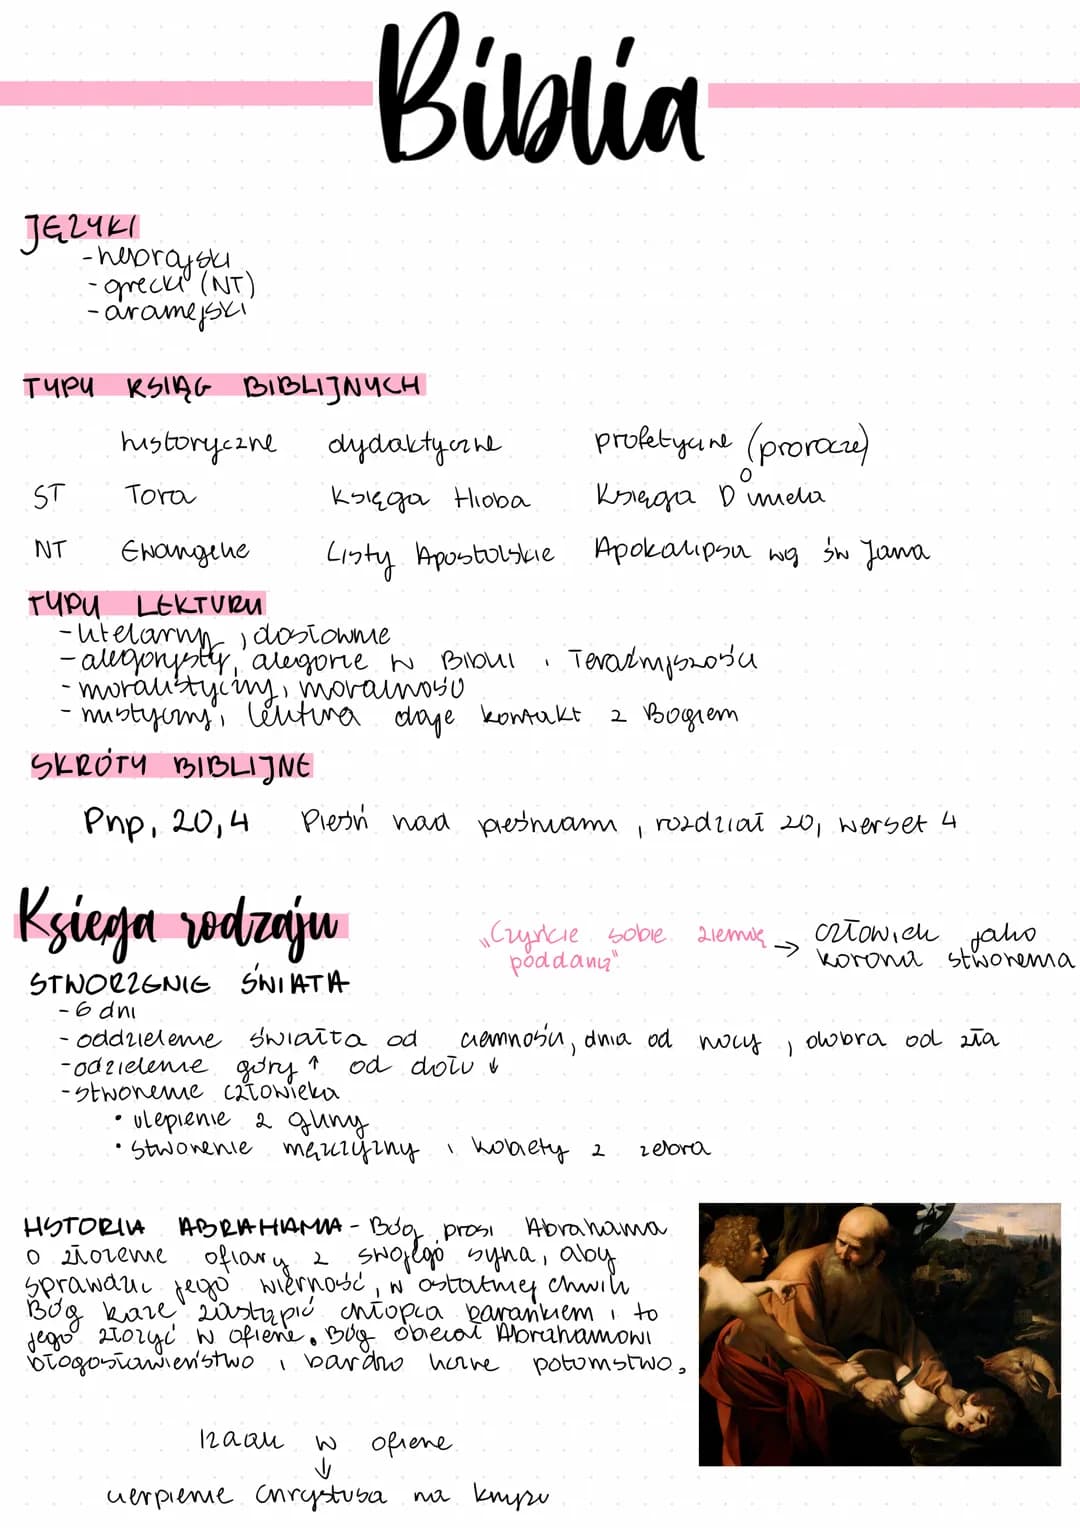 Biblia
JĘZYKI
- hebrajski
- grecki (NT)
- aramejski
TYPY KSIĄG BIBLIJNYCH
historyczne dydaktyczne profetyczne (prorocze)
ST Tora Księga Hioba Księga Daniela
NT Ewangelie Listy Apostolskie Apokalipsa wg św Jana
TYPY LEKTURY
- literarny, dosłownie
- alegorysty, alegorie w Biblii i Teraźniejszości
- moralistyczny, moralność
- mistyczny, lektura daje kontakt z Bogiem
SKRÓTY BIBLIJNE
Pnp, 20,4 Pieśń nad pieśniami, rozdział 20, werset 4
Księga rodzaju
„Czyńcie sobie ziemię poddaną" → człowiek jako korona stworzenia
STWORZENIE ŚWIATA
- 6 dni
- oddzielenie światła od ciemności, dnia od nocy, dobra od zła
- odzielenie góry ↑ od dołu ↓
- stworzenie człowieka
• ulepienie z gliny
• stworzenie mężczyzny i kobiety z żebra
HISTORIA ABRAHAMA - Bóg prosi Abrahama
o złożenie ofiary z swojego syna, aby
sprawdzić jego wierność, w ostatniej chwili
Bóg każe zastąpić chłopca barankiem i to
jego złożyć w ofierze. Bóg obiecał Abrahamowi
błogosławieństwo i bardzo liczne potomstwo.
Izaak w ofierze
↓
cierpienie Chrystusa na krzyżu